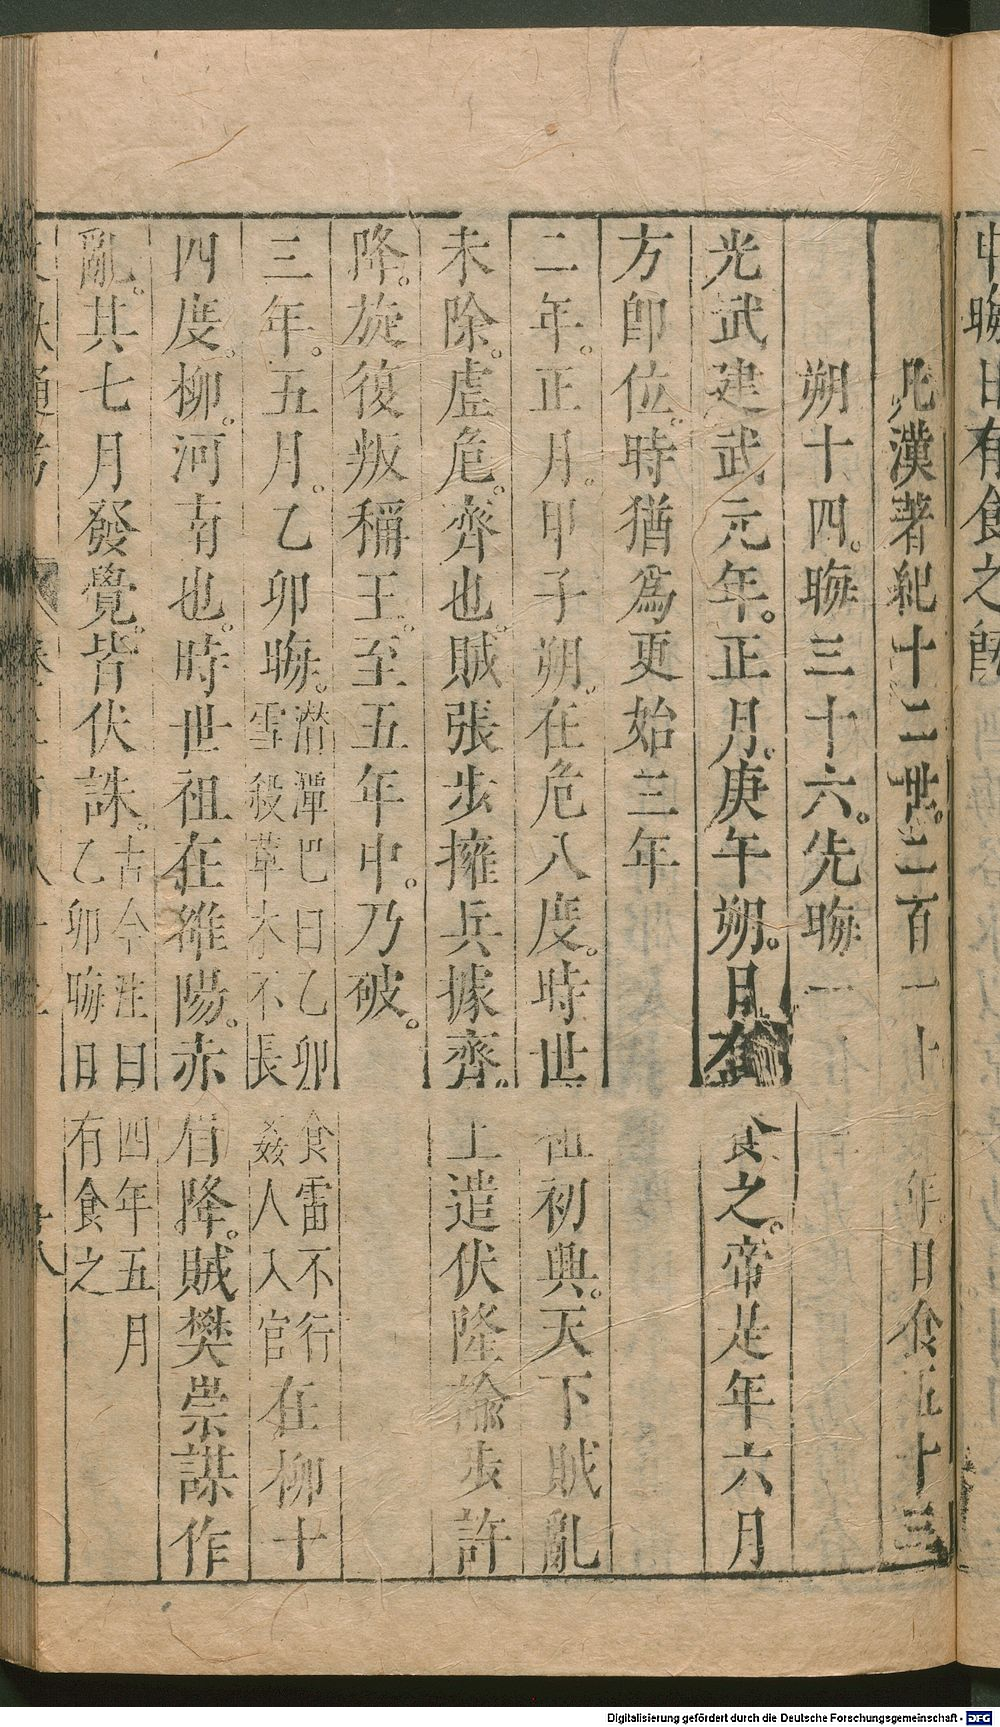 中晦日有食之旣
凡漢著紀十二世。二百一十 年。日食五十三
朔十四。晦三十六。先晦一
光武建武元年。正月。庚午朔。日有食之。帝是年六月
方卽位。時猶爲更始三年
二年。正月。甲子朔。在危八度。時世祖初興。天下賊亂
未除。虛危。齊也。賊張步擁兵據齊。上遣伏隆諭步許
降。旋復叛稱王。至五年中。乃破。
三年。五月。乙卯晦。潛潭巴曰乙卯食雷不行
雪殺草木不長姦人入官在柳十
四度。柳。河南也。時世祖在雒陽。赤眉降。賊樊崇謀作
亂。其七月發覺。皆伏誅。古今注曰四年五月
乙卯晦日有食之
Digitalisierung gefördert durch die Deutsche Forschungsgemeinschaft - DFG